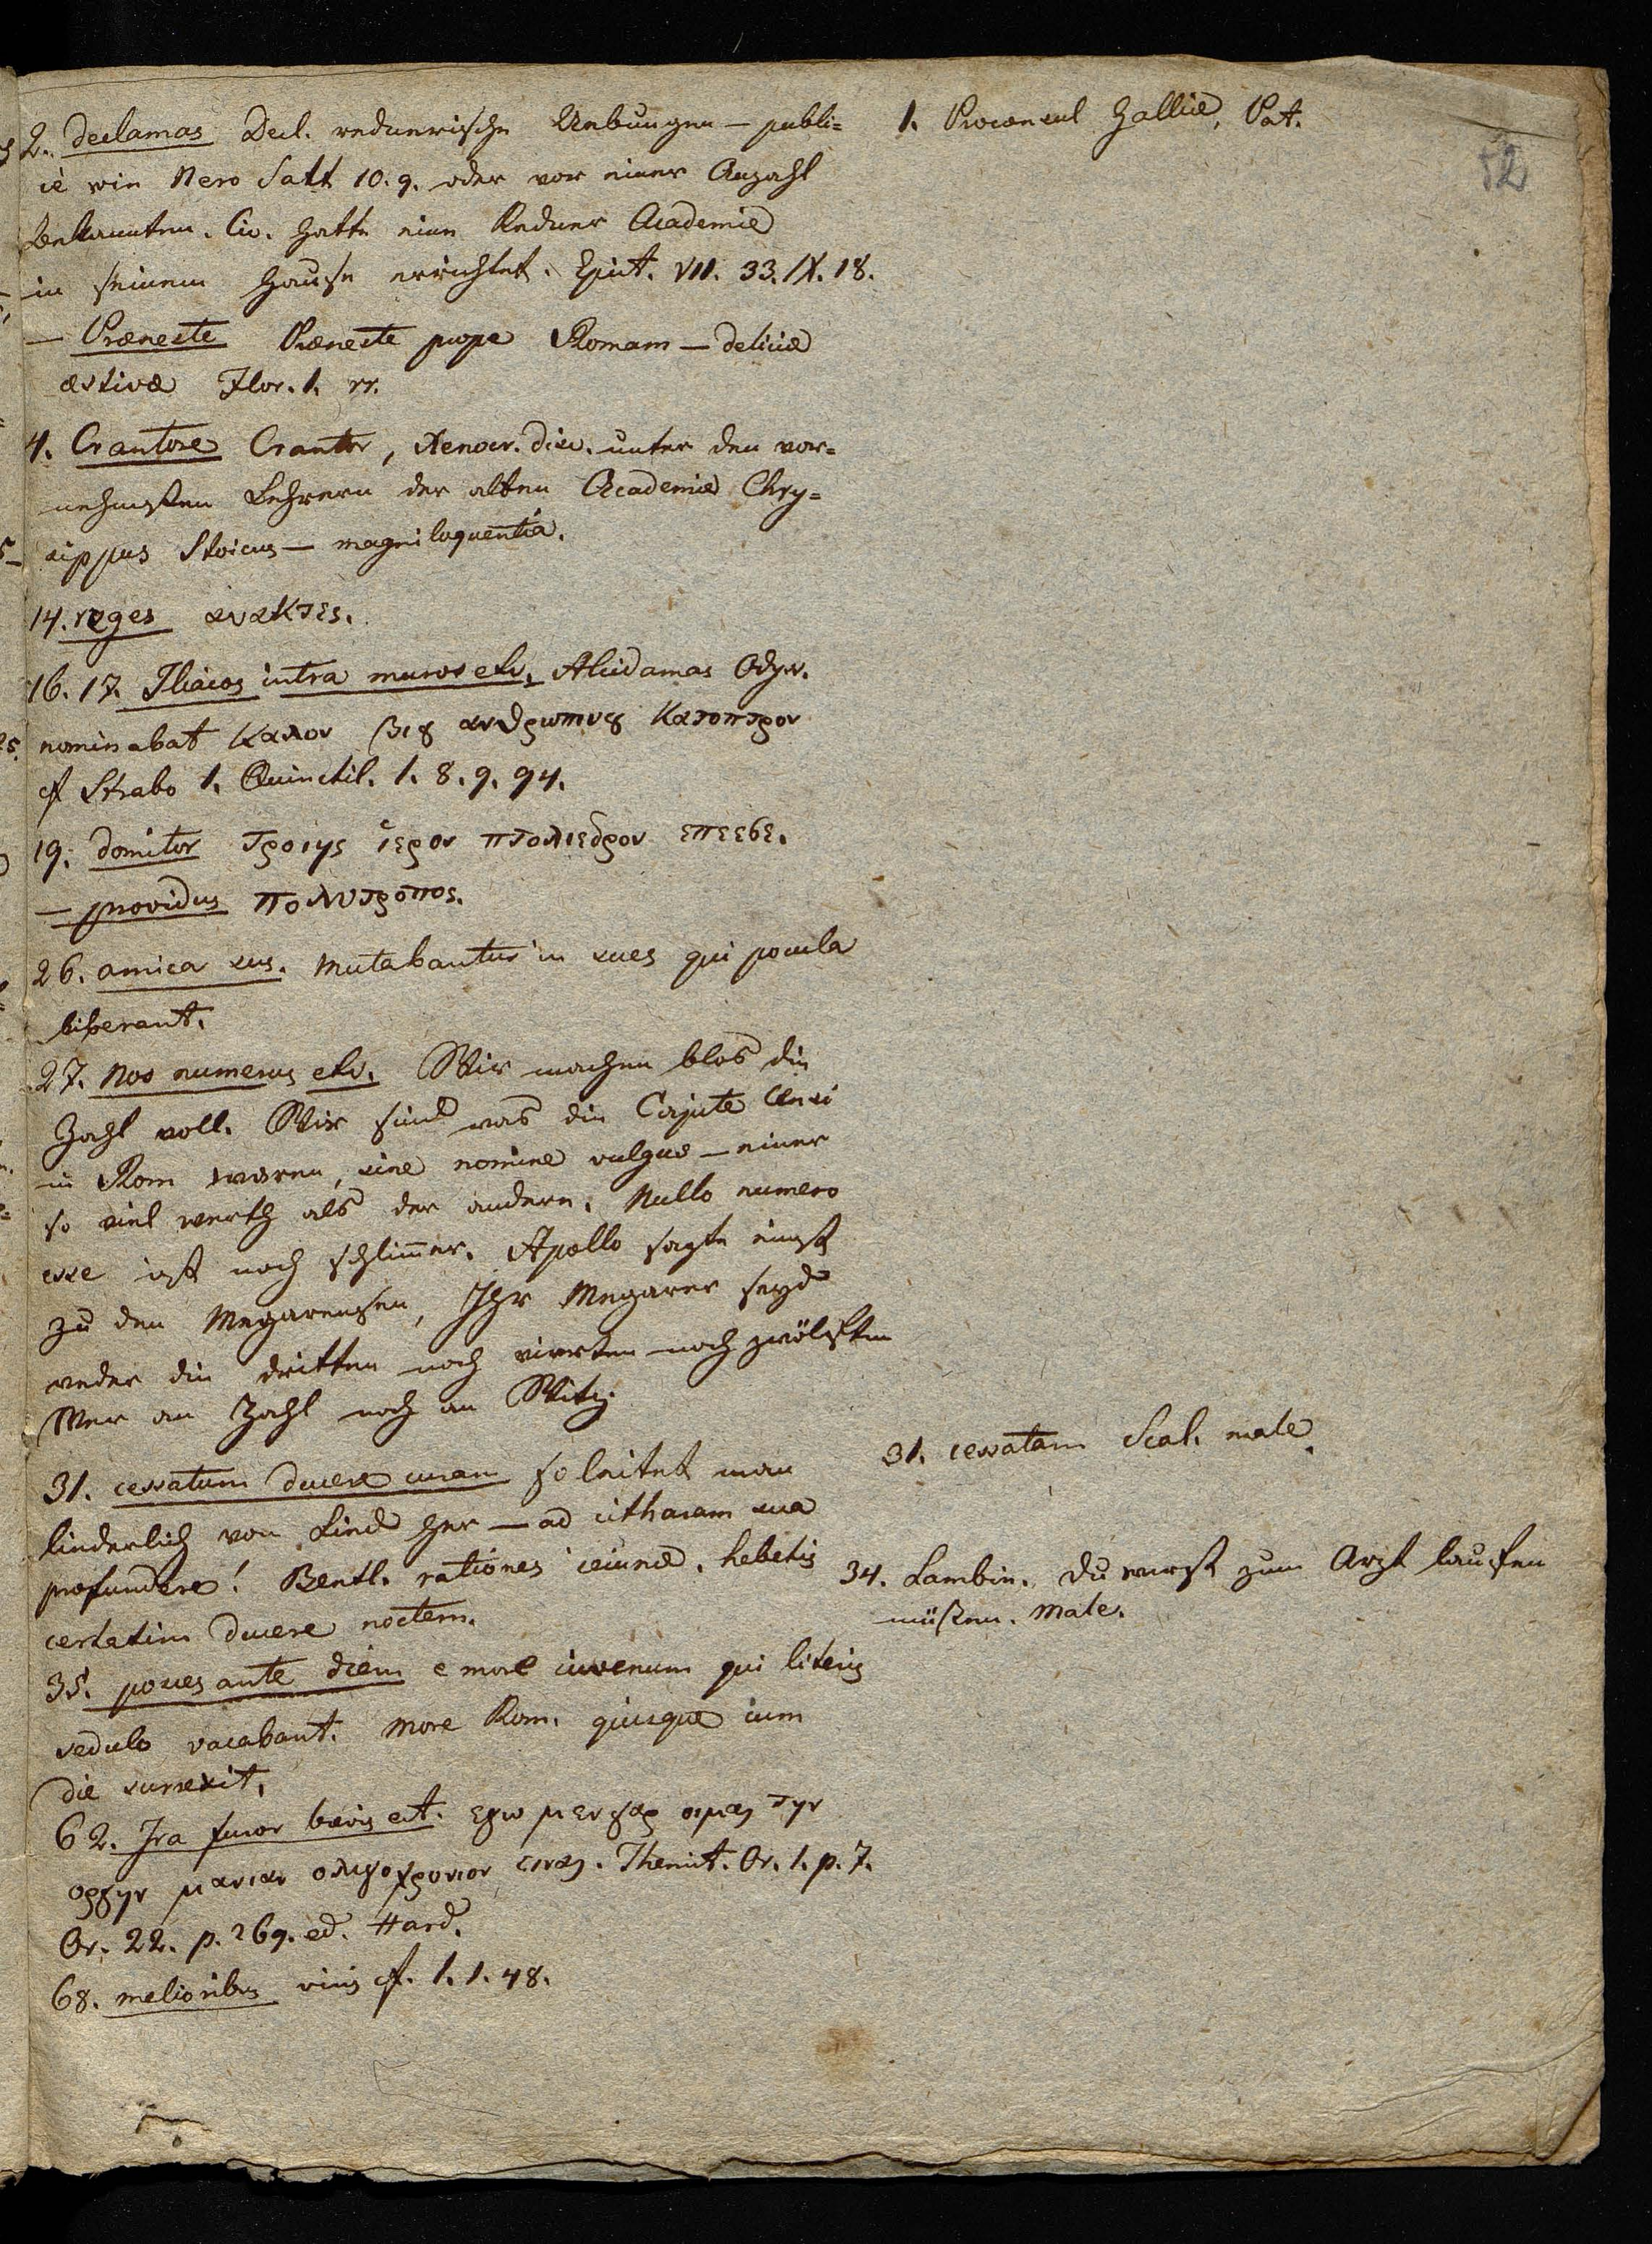 2. declamas Decl. rednerische Uebungen — publi=
ce wie Nero Satt 10. 9. oder vor einer Anzahl
Bekannten. Cic. hatte eine Redner Academie
in seinem Hause errichtet. Epist. VII. 33. IX. 18.
— Præneste Præneste prope Romam — deliciæ
æstivæ Flor. 1. 11.
4. Crantore Crantor, Xenocr. disc. unter den vor=
nehmsten Lehrern der alten Academie Chry=
sippus Stoicus — magniloquentia.
14. reges ανακτες.
16. 17. Iliacos intra muros etc. Alcidamas Odyss.
nominabat καλον βιȣ ανθρωπινȣ κατοπτρον
cf Strabo 1. Quinctil. 1. 8. 9. 94.
19. domitor τροιης ἱερον πτολιεθρον επερσε.
— providus πολυτροπος.
26. amica sus. mutabantur in sues qui pocula
biberant.
27. Nos numerus etc. Wir machen blos die
Zahl voll. Wir sind was die Capite Censi
in Rom waren, sine nomine vulgus — einer
so viel werth als der andere. Nullo numero
esse ist noch schlim̄er. Apollo sagte einst
zu den Megarensern, Ihr Megarer seyd
weder die dritten noch vierten noch zwölften
Wer an Zahl noch an Witz.
31. cessatum ducere curam so leitet man
liederlich von Lied her — ad citharam sua
profundere! Bentl. rationes ieiunæ. hebetis
certatim ducere noctem.
35. posces ante diem e more iuvenum qui literis
sedulo vacabant. more Rom. quisque cum
die surrexit.
62. Ira furor brevis est. εγω μεν γαρ οιμαι την
οργην μανιαν ολιγοχρονιον ειναι. Themist. Or. 1. p. 7.
Or. 22. p. 269. ed. Hard.
68. melioribus vinis cf. 1. 1. 48.
1. Proconsul Galliæ, Pat.
52
31. cessatam Scal. male.
34. Lambin. du wirst zum Arzt laufen
müßen. Male.